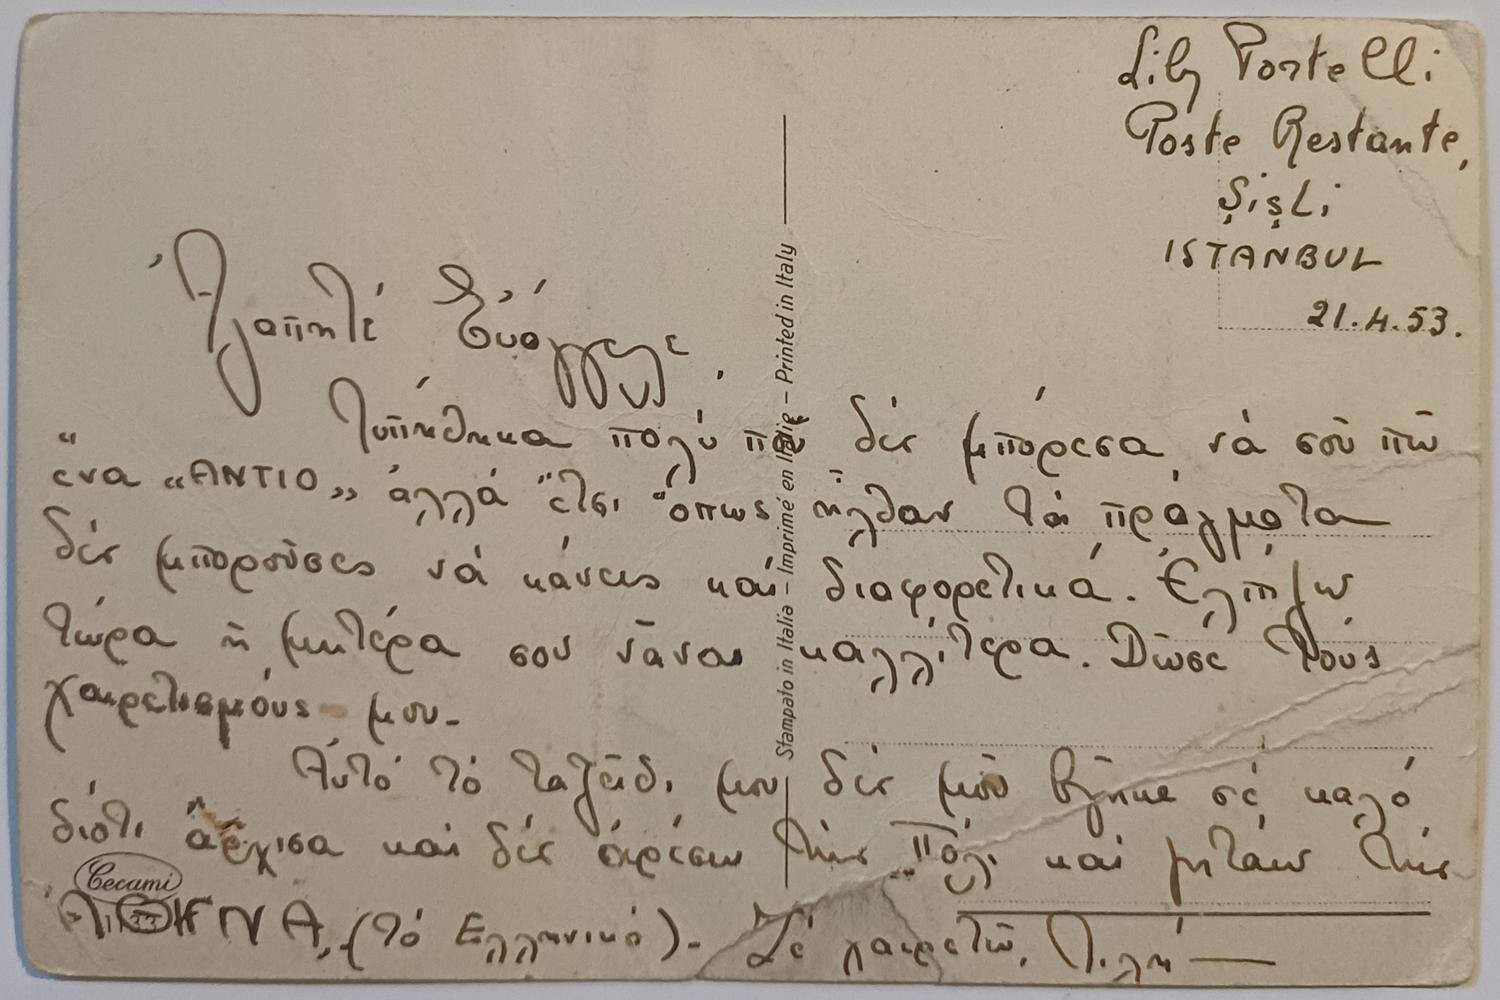 Lily Portelli
Poste Restante,
Şişli
ISTANBUL
21.4.53.
Ἀγαπητέ Εὐάγγελε,
Λυπήθηκα πολύ ποῦ δέν μπόρεσα, νά σοῦ πῶ
ἕνα «ΑΝΤΙΟ» ἀλλά ἔτσι ὅπως ἦλθαν τά πράγματα
δέν μποροῦσες νά κάνεις καί διαφορετικά. Ἐλπίζω
τώρα ἡ μητέρα σου νᾶναι καλλίτερα. Δῶσε τούς
χαιρετισμούς μου.
Αὐτό τό ταξεῖδι μου δέν μοῦ βγῆκε σέ καλό
διότι ἄρχισα καί δέν τήν Πόλι καί τήν
(τό Ἑλληνικό). Σέ χαιρετῶ, Λιλή
Stampato in Italia – Imprimé en Italie – Printed in Italy
Cecami